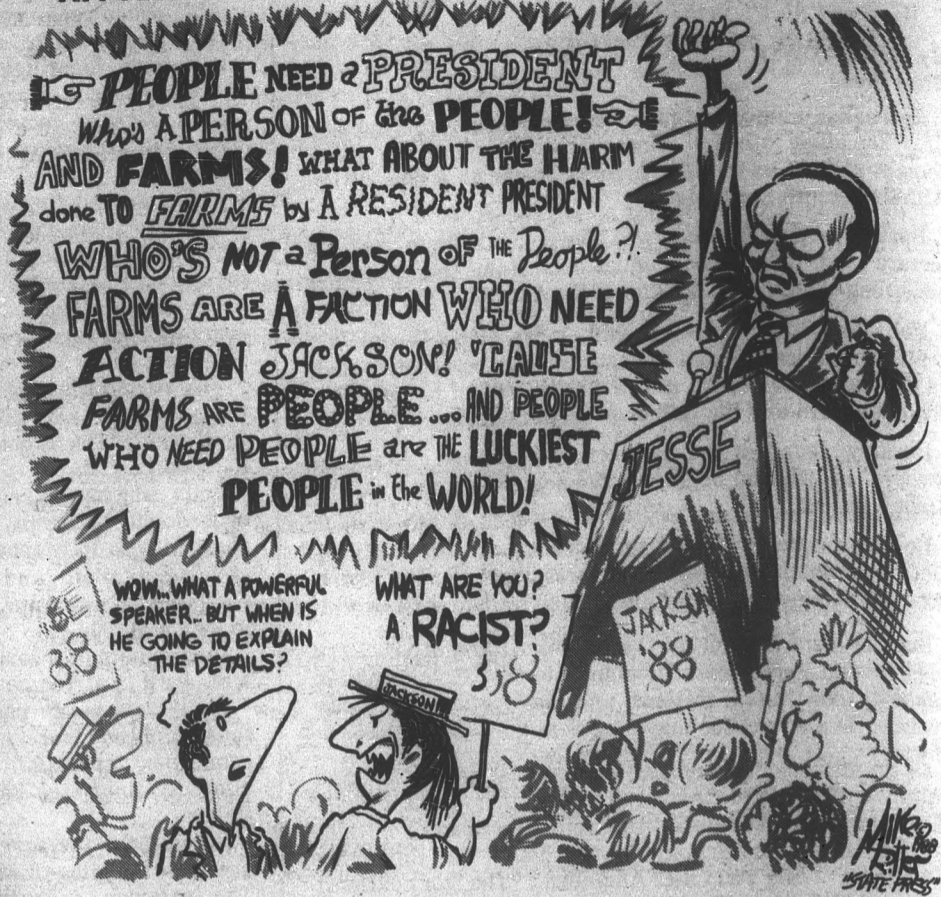 PEOPLE NEED a PRESIDENT
Who's A PERSON OF the PEOPLE!
AND FARMS! WHAT ABOUT THE HARM
done TO FARMS by A RESIDENT PRESIDENT
WHO'S NOT a Person OF THE People?!
FARMS ARE A FACTION WHO NEED
ACTION JACKSON! 'CAUSE
FARMS ARE PEOPLE... AND PEOPLE
WHO NEED PEOPLE are THE LUCKIEST
PEOPLE in the WORLD!
JESSE
WOW... WHAT A POWERFUL
SPEAKER... BUT WHEN IS
HE GOING TO EXPLAIN
THE DETAILS?
WHAT ARE YOU?
A RACIST?
JACKSON
'88
JACKSON
MIKE
1988
"STATE PRESS"